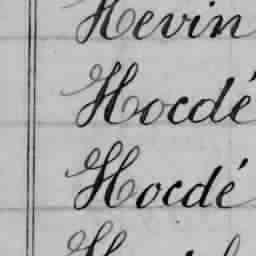 Hevin
Hocdé
Hocdé